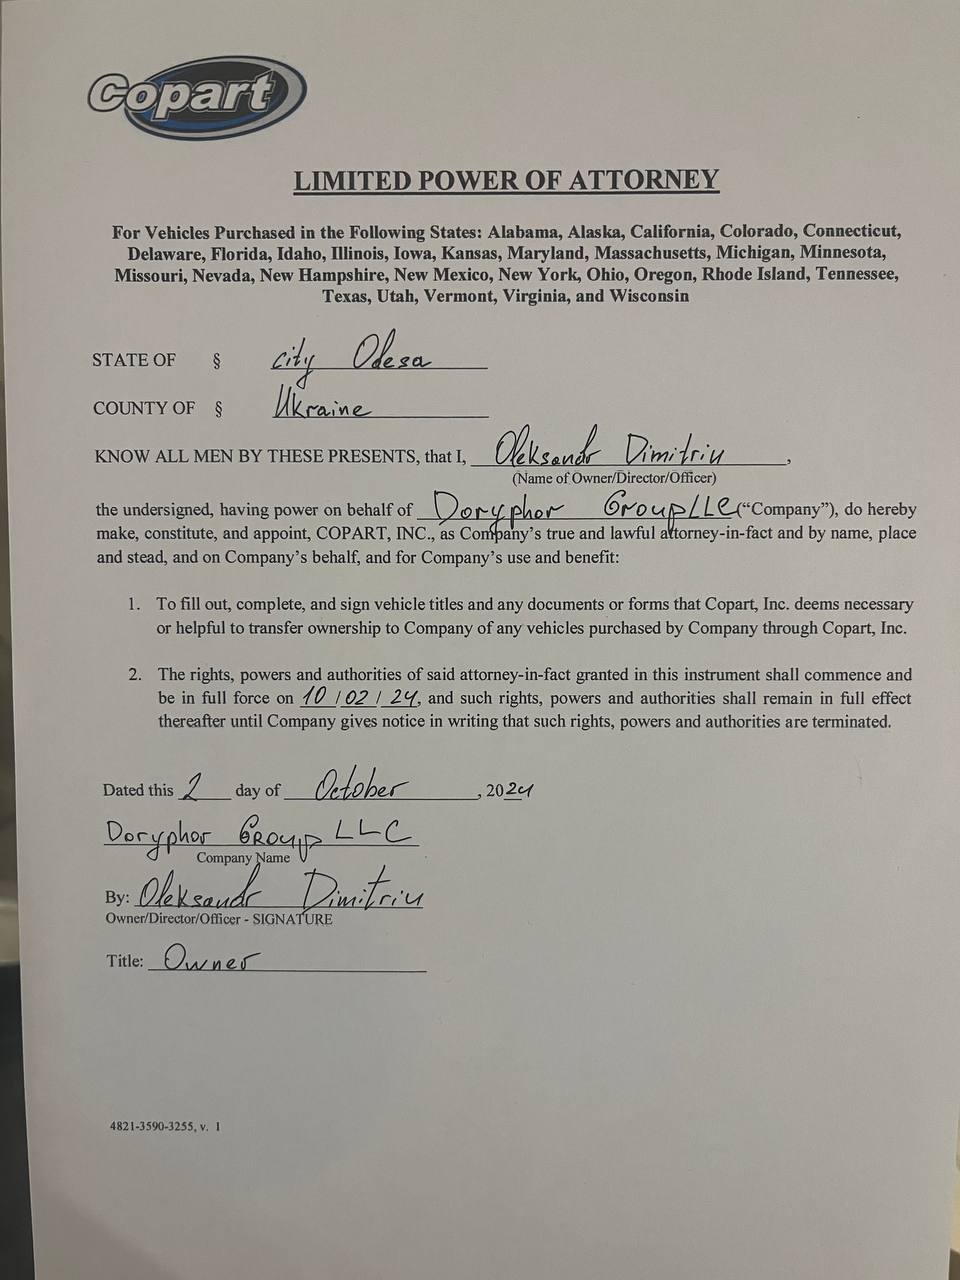 Copart
LIMITED POWER OF ATTORNEY
For Vehicles Purchased in the Following States: Alabama, Alaska, California, Colorado, Connecticut,
Delaware, Florida, Idaho, Illinois, Iowa, Kansas, Maryland, Massachusetts, Michigan, Minnesota,
Missouri, Nevada, New Hampshire, New Mexico, New York, Ohio, Oregon, Rhode Island, Tennessee,
Texas, Utah, Vermont, Virginia, and Wisconsin
STATE OF § city Odesa
COUNTY OF § Ukraine
KNOW ALL MEN BY THESE PRESENTS, that I, Oleksandr Dimitriu,
(Name of Owner/Director/Officer)
the undersigned, having power on behalf of Doryphor Group LLC (“Company”), do hereby
make, constitute, and appoint, COPART, INC., as Company’s true and lawful attorney-in-fact and by name, place
and stead, and on Company’s behalf, and for Company’s use and benefit:
1. To fill out, complete, and sign vehicle titles and any documents or forms that Copart, Inc. deems necessary
or helpful to transfer ownership to Company of any vehicles purchased by Company through Copart, Inc.
2. The rights, powers and authorities of said attorney-in-fact granted in this instrument shall commence and
be in full force on 10 / 02 / 24, and such rights, powers and authorities shall remain in full effect
thereafter until Company gives notice in writing that such rights, powers and authorities are terminated.
Dated this 2 day of October, 2024
Doryphor Group LLC
Company Name
By: Oleksandr Dimitriu
Owner/Director/Officer - SIGNATURE
Title: Owner
4821-3590-3255, v. 1